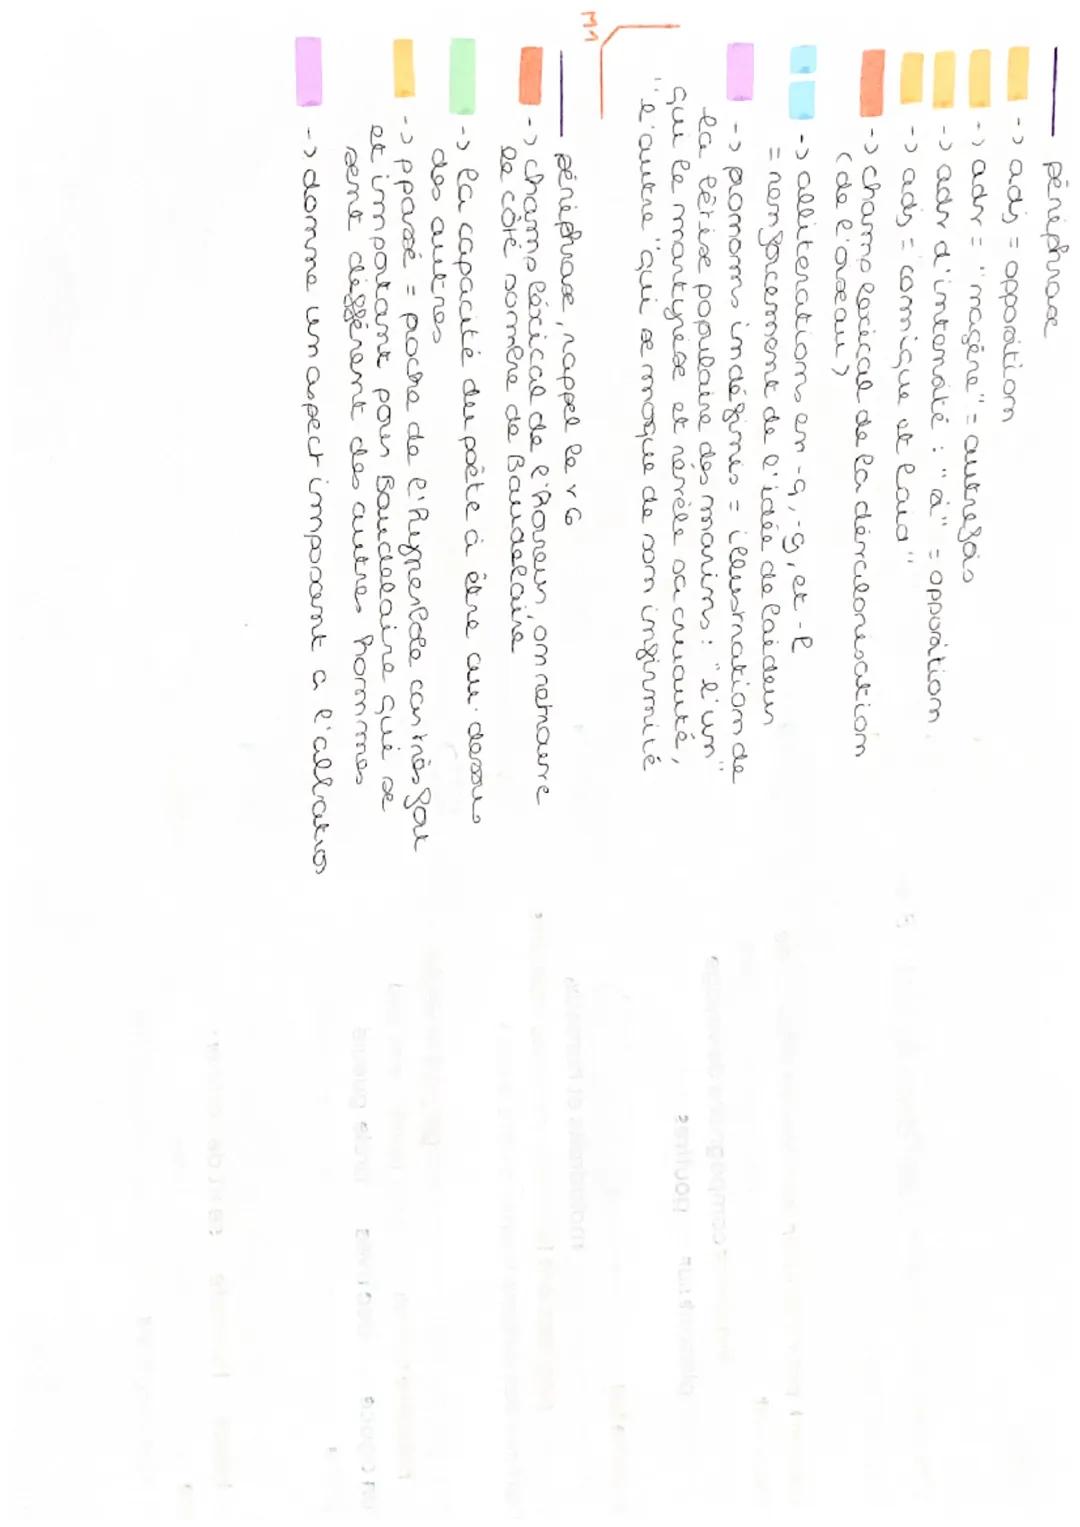 périphrase
-> adj = opposition
-> adv = "magère" = autrefois
-> adv d'intensité : "si" = opposition
-> adj = "comique et laid"
-> champ lexical de la dévalorisation
(de l'oiseau)
-> allitérations en -q, -g, et -l
= renforcement de l'idée de laideur
-> pronoms indéfinis = illustration de
la bêtise populaire des marins : "l'un"
qui le martyrise et révèle sa cruauté,
"l'autre" qui se moque de son infirmité
périphrase, rappel le v6
-> champ léxical de l'horreur, on retrouve
le côté sombre de Baudelaire
-> la capacité du poète à être au-dessus
des autres
-> ppassé = proche de l'hyperbole car très fort
et important pour Baudelaire qui se
sent différent des autres hommes
-> donne un aspect imposant a l'albatros